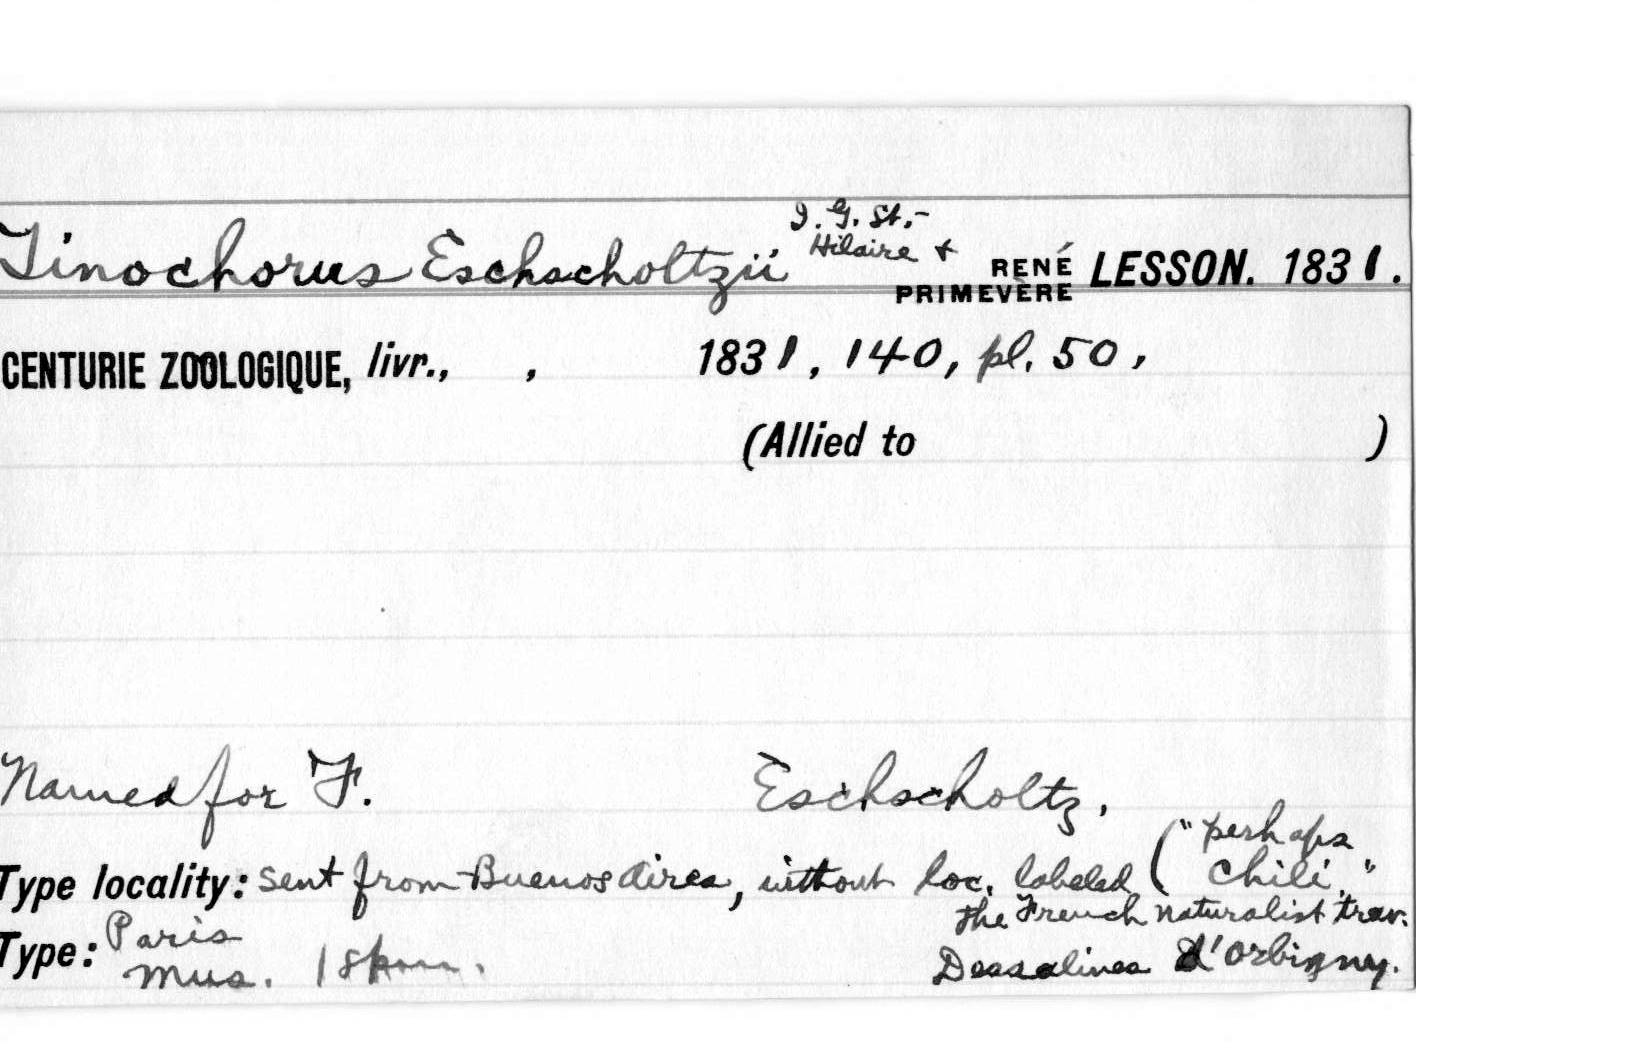 I. G. St.-
Tinochorus Eschscholtzii Hilaire + RENÉ PRIMEVÈRE LESSON. 1831.
CENTURIE ZOOLOGIQUE, livr., , 1831, 140, pl. 50,
(Allied to )
Named for F. Eschscholtz,
("perhaps
Type locality: sent from Buenos Aires, without loc. labeled Chili,"
the French naturalist trav.
Type: Paris
Mus. 1 Dessalines d'Orbigny.